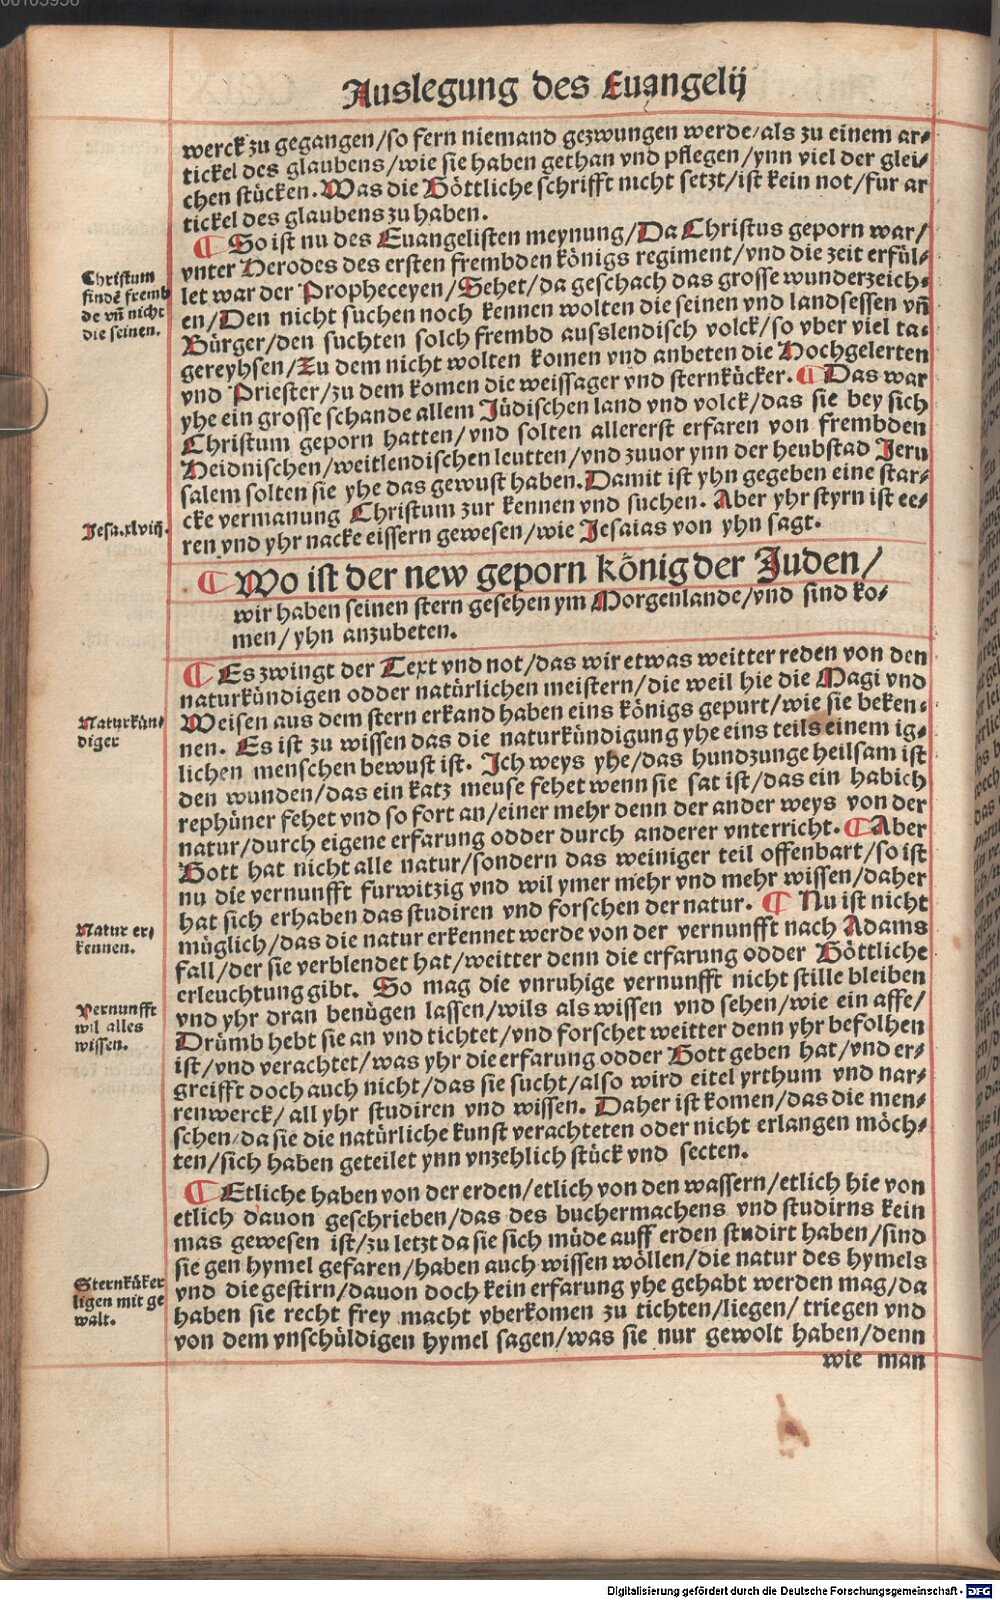 Auslegung des Euangelij
werck zu gegangen/so fern niemand gezwungen werde/als zu einem ar-
tickel des glaubens/wie sie haben gethan vnd pflegen/ynn viel der glei-
chen stücken. Was die Göttliche schrifft nicht setzt/ist kein not/fur ar
tickel des glaubens zu haben.
¶ So ist nu des Euangelisten meynung/Da Christus geporn war/
vnter Herodes des ersten frembden königs regiment/vnd die zeit erfül-
let war der Propheceyen/Sehet/da geschach das grosse wunderzeich-
en/Den nicht suchen noch kennen wolten die seinen vnd landsessen vñ
Bürger/den suchten solch frembd ausslendisch volck/so vber viel ta-
gereyhsen/Zu dem nicht wolten komen vnd anbeten die Hochgelerten
vnd Priester/zu dem komen die weissager vnd sternkücker. ¶ Das war
yhe ein grosse schande allem Jüdischen land vnd volck/das sie bey sich
Christum geporn hatten/vnd solten allererst erfaren von frembden
Heidnischen/weitlendischen leutten/vnd zuuor ynn der heubstad Jeru
salem solten sie yhe das gewust haben. Damit ist yhn gegeben eine star-
cke vermanung Christum zur kennen vnd suchen. Aber yhr styrn ist ee-
ren vnd yhr nacke eissern gewesen/wie Jesaias von yhn sagt.
Christum
findē fremb
de vñ nicht
die seinen.
Jesa.xlviij.
¶ Wo ist der new geporn könig der Juden/
wir haben seinen stern gesehen ym Morgenlande/vnd sind ko-
men/yhn anzubeten.
¶ Es zwingt der Text vnd not/das wir etwas weitter reden von den
naturkündigen odder natürlichen meistern/die weil hie die Magi vnd
Weisen aus dem stern erkand haben eins königs gepurt/wie sie beken-
nen. Es ist zu wissen das die naturkündigung yhe eins teils einem ig-
lichen menschen bewust ist. Ich weys yhe/das hundzunge heilsam ist
den wunden/das ein katz meuse fehet wenn sie sat ist/das ein habich
rephüner fehet vnd so fort an/einer mehr denn der ander weys von der
natur/durch eigene erfarung odder durch anderer vnterricht. ¶ Aber
Gott hat nicht alle natur/sondern das weiniger teil offenbart/so ist
nu die vernunfft furwitzig vnd wil ymer mehr vnd mehr wissen/daher
hat sich erhaben das studiren vnd forschen der natur. ¶ Nu ist nicht
müglich/das die natur erkennet werde von der vernunfft nach Adams
fall/der sie verblendet hat/weitter denn die erfarung odder Göttliche
erleuchtung gibt. So mag die vnruhige vernunfft nicht stille bleiben
vnd yhr dran benügen lassen/wils als wissen vnd sehen/wie ein affe/
Drümb hebt sie an vnd tichtet/vnd forschet weitter denn yhr befolhen
ist/vnd verachtet/was yhr die erfarung odder Gott geben hat/vnd er-
greifft doch auch nicht/das sie sucht/also wird eitel yrthum vnd nar-
renwerck/all yhr studiren vnd wissen. Daher ist komen/das die men-
schen/da sie die natürliche kunst verachteten oder nicht erlangen möch-
ten/sich haben geteilet ynn vnzehlich stück vnd secten.
Naturkün-
diger
Natur er-
kennen.
Vernunfft
wil alles
wissen.
¶ Etliche haben von der erden/etlich von den wassern/etlich hie von
etlich dauon geschrieben/das des buchermachens vnd studirns kein
mas gewesen ist/zu letzt da sie sich müde auff erden studirt haben/sind
sie gen hymel gefaren/haben auch wissen wöllen/die natur des hymels
vnd die gestirn/dauon doch kein erfarung yhe gehabt werden mag/da
haben sie recht frey macht vberkomen zu tichten/liegen/triegen vnd
von dem vnschüldigen hymel sagen/was sie nur gewolt haben/denn
Sternküker
ligen mit ge
walt.
wie man
Digitalisierung gefördert durch die Deutsche Forschungsgemeinschaft - DFG